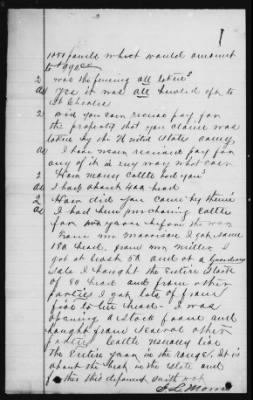 1050 panels which would amount
to $90.00
2 was the fencing all taken?
A Yes it was all hauled off to
2 did you ever receive pay for
the property that you claim was
taken by the United States army
A I have never received pay for
any of it in any way what ever
2 How many cattle had you?
A I had about head
2 How did you came by them?
A I had been purchasing cattle
for years before the war
From mr morrison I got some
150 head, from mr miller I
got at least 50 and at a
sale I bought the entire stock
of 50 head and from other
parties I got lots of from
five to ten head. I was
opening a stock farm and
bought from several other
parties. Cattle usually live
the entire year in the range. It is
about the in the state and
further this deponent saith not